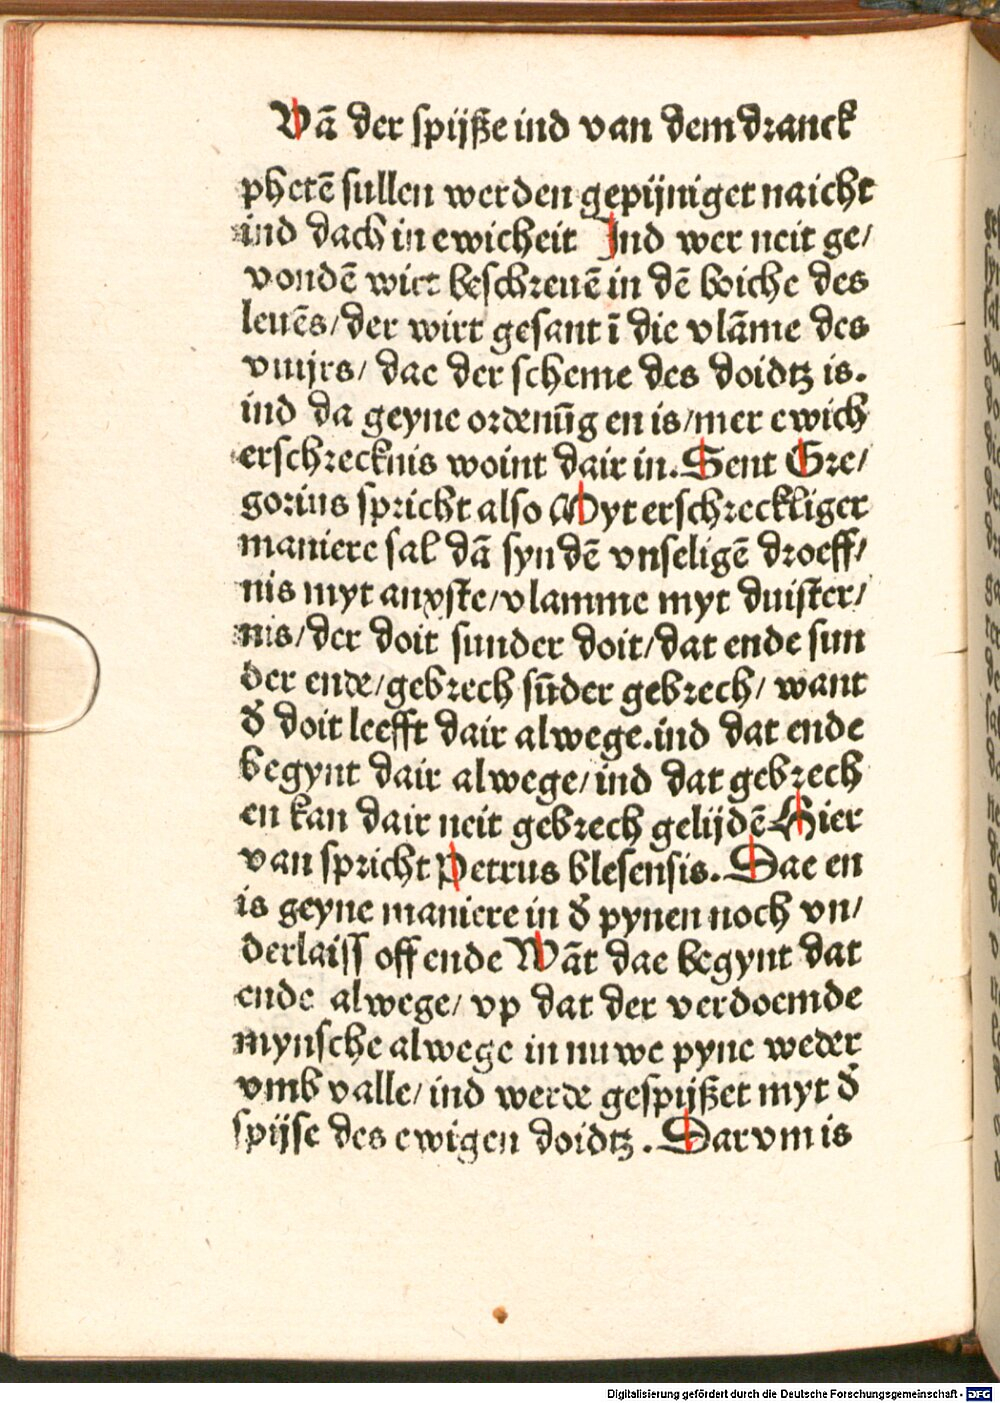 Vā der spijße ind van dem dranck
phetē sullen werden gepijniget naicht
ind dach in ewicheit Ind wer neit ge/
vondē wirt beschreuē in dē boiche des
leuēs/der wirt gesant ī die vlāme des
vuijrs/ dae der scheme des doidtz is.
ind da geyne ordenūg en is/mer ewich
erschrecknis woint dair in. Sent Gre/
gorius spricht also Myt erschreckliger
maniere sal dā syn dē vnseligē droeff/
nis myt anxste/vlamme myt duister/
nis/der doit sunder doit/dat ende sun
der ende/gebrech sūder gebrech/ want
d̓ doit leefft dair alwege.ind dat ende
begynt dair alwege/ind dat gebrech
en kan dair neit gebrech gelijdē Hier
van spricht Petrus blesensis. Dae en
is geyne maniere in d̓ pynen noch vn/
derlaiss off ende Wāt dae begynt dat
ende alwege/ vp dat der verdoemde
mynsche alwege in nuwe pyne weder
vmb valle/ind werde gespijßet myt d̓
spijse des ewigen doidtz. Darvm is
Digitalisierung gefördert durch die Deutsche Forschungsgemeinschaft - DFG